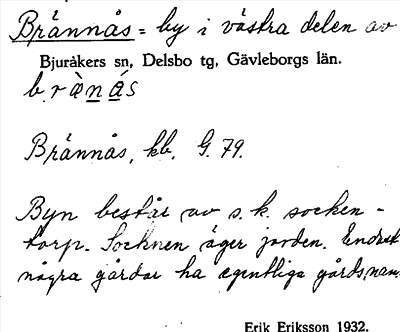 Brännås = by i västra delen av
Bjuråkers sn, Delsbo tg, Gävleborgs län.
brä̀nás
Brännås, kb. G. 79.
Byn består av s. k. socken-
torp. Socknen äger jorden. Endast
några gårdar ha egentliga gårdsnamn
Erik Eriksson 1932.